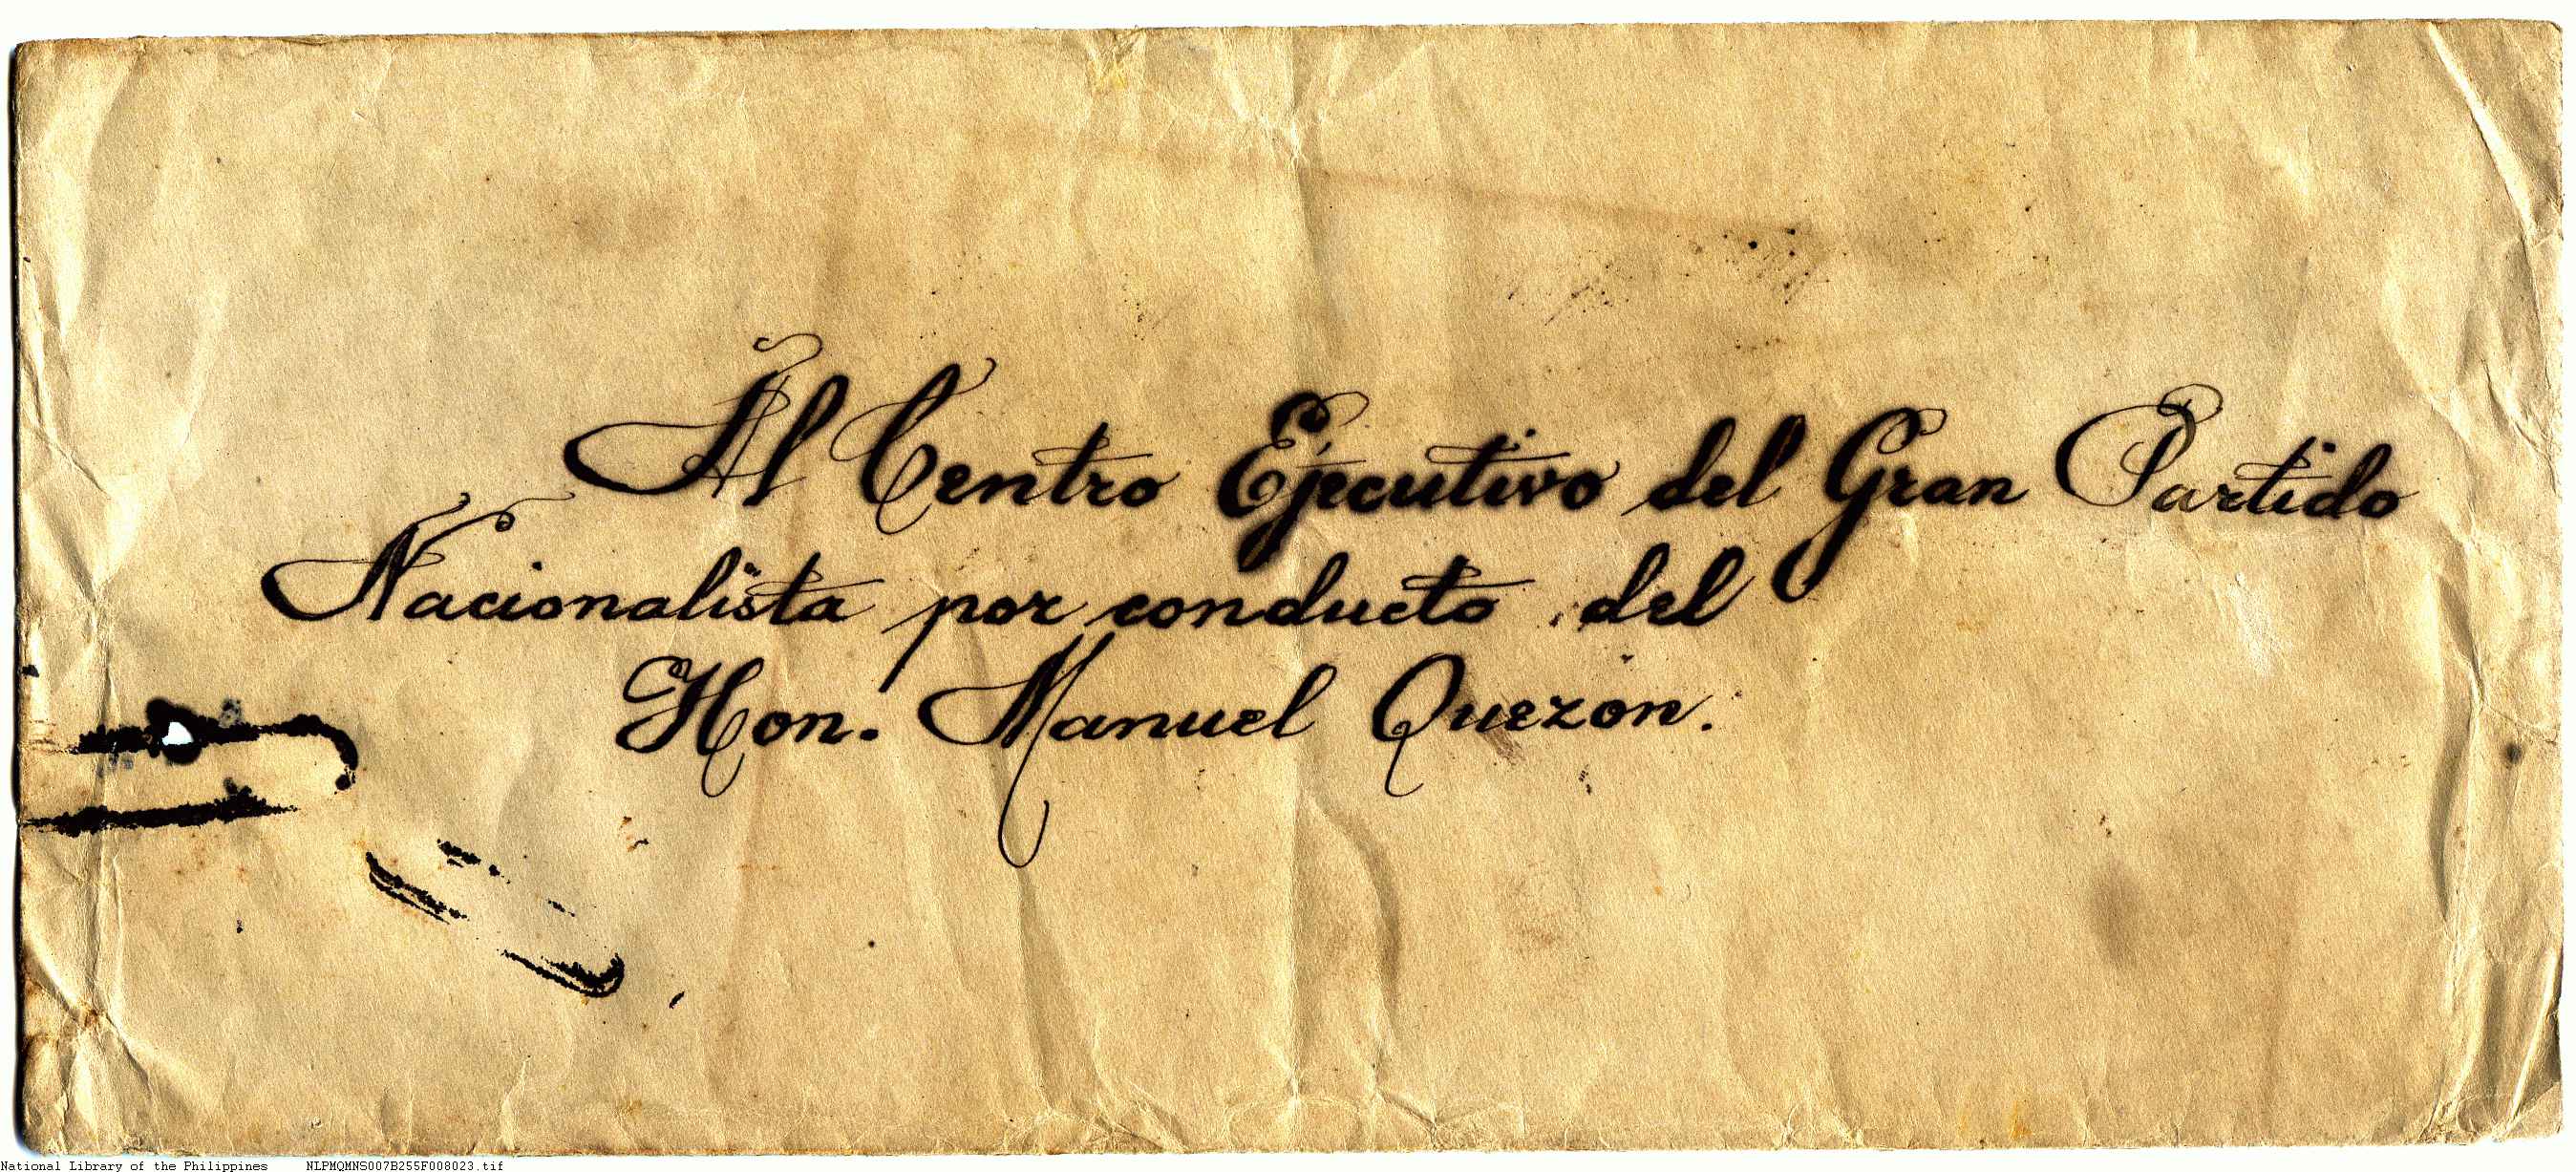 Al Centro Ejecutivo del Gran Partido
Nacionalista por conducto del
Hon. Manuel Quezon.
National Library of the Philippines NLPMQMNS007B255F008023.tif